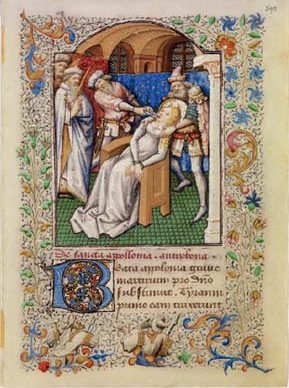 De sancta apollonia. antiphona
Beata apolonia
martirium pro dño
sustinuit. Tyranni
primo eam